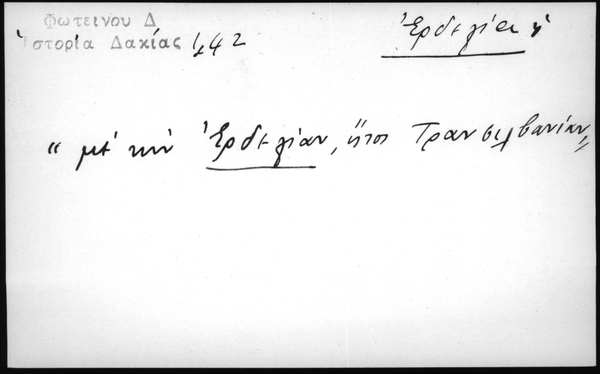 Φωτεινου Δ
Ἱστορία Δακίας 442
Ἐρδελία ἡ
“ μὲ τὴν Ἐρδελίαν, ἤτοι Τρανσιλβανίαν„